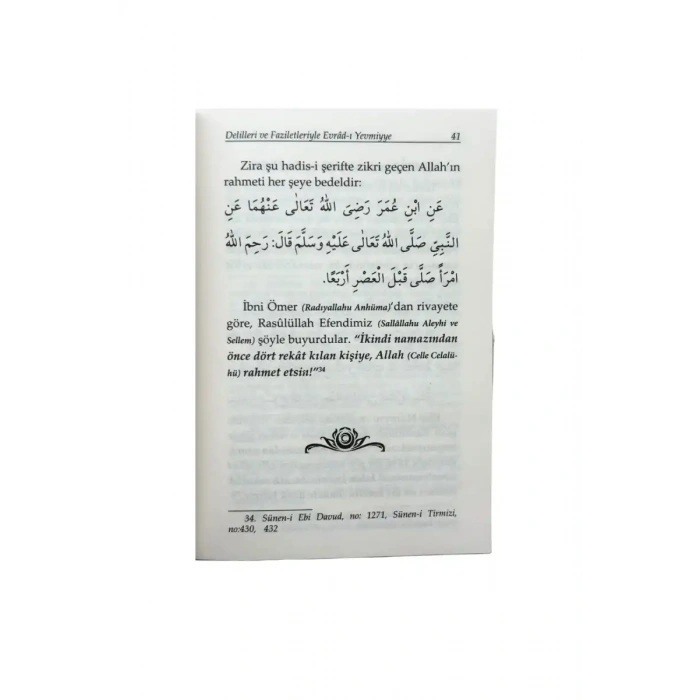 Delilleri ve Faziletleriyle Evrâd-ı Yevmiyye 41
Zira şu hadis-i şerifte zikri geçen Allah'ın
rahmeti her şeye bedeldir:
عَنِ ابْنِ عُمَرَ رَضِىَ اللّٰهُ تَعَالٰى عَنْهُمَا عَنِ
النَّبِيِّ صَلَّى اللّٰهُ تَعَالٰى عَلَيْهِ وَسَلَّمَ قَالَ: رَحِمَ اللّٰهُ
امْرَأً صَلَّى قَبْلَ الْعَصْرِ أَرْبَعًا.
İbni Ömer (Radıyallahu Anhüma)'dan rivayete
göre, Rasûlüllah Efendimiz (Sallâllahu Aleyhi ve
Sellem) şöyle buyurdular. “İkindi namazından
önce dört rekât kılan kişiye, Allah (Celle Celalü-
hü) rahmet etsin!”34
34. Sünen-i Ebi Davud, no: 1271, Sünen-i Tirmizi,
no:430, 432